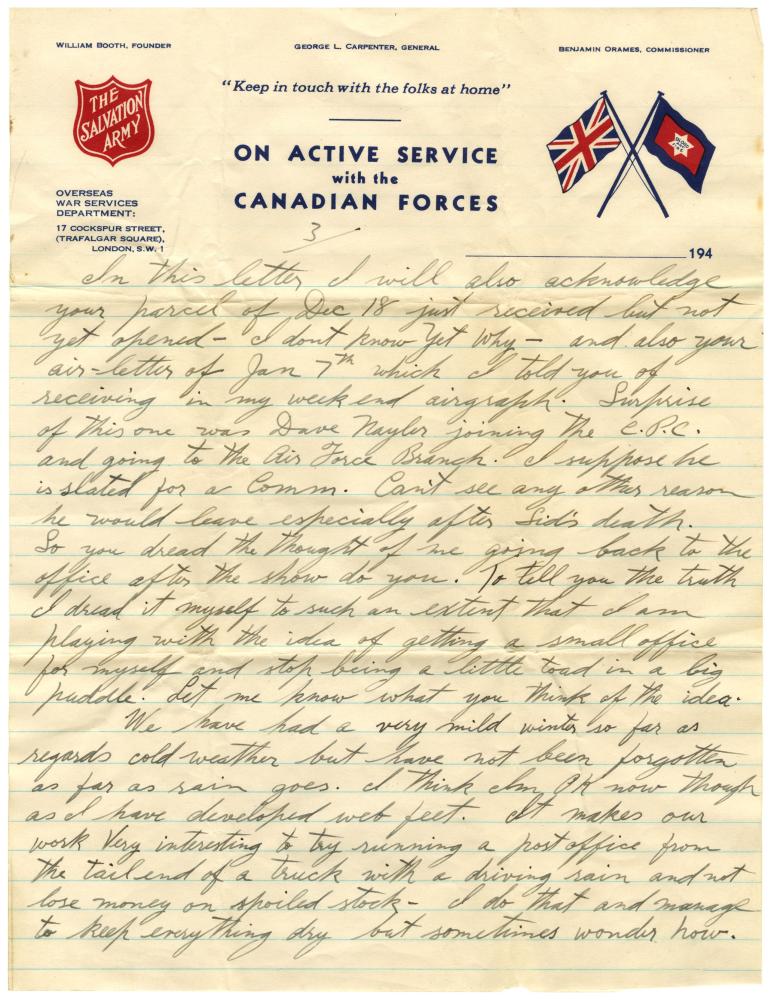 WILLIAM BOOTH, FOUNDER
GEORGE L. CARPENTER, GENERAL
BENJAMIN ORAMES, COMMISSIONER
THE
SALVATION
ARMY
"Keep in touch with the folks at home"
ON ACTIVE SERVICE
with the
CANADIAN FORCES
OVERSEAS
WAR SERVICES
DEPARTMENT:
17 COCKSPUR STREET,
(TRAFALGAR SQUARE),
LONDON, S.W. 1
BLOOD
AND
FIRE
3
194
In this letter I will also acknowledge
your parcel of Dec 18 just received but not
yet opened - I dont know yet why - and also your
air-letter of Jan 7th which I told you of
receiving in my week end airgraph. Surprise
of this one was Dave Nayler joining the C.P.C.
and going to the Air Force Branch. I suppose he
is slated for a Comm. Can't see any other reason
he would leave especially after Sid's death.
So you dread the thought of me going back to the
office after the show do you. To tell you the truth
I dread it myself to such an extent that I am
playing with the idea of getting a small office
for myself and stop being a little toad in a big
puddle. Let me know what you think of the idea.
We have had a very mild winter so far as
regards cold weather but have not been forgotten
as far as rain goes. I think I'm OK now though
as I have developed web feet. It makes our
work very interesting to try running a post office from
the tail end of a truck with a driving rain and not
lose money on spoiled stock - I do that and manage
to keep everything dry but sometimes wonder how.